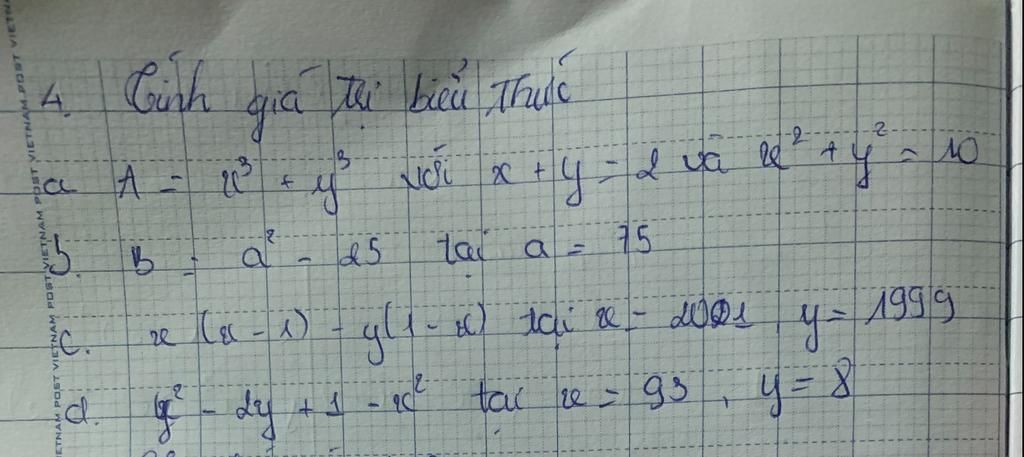 4. Tính giá trị biểu thức
a A = x³ + y³ với x + y = 2 và x² + y² = 10
b. B = a² - 25 tại a = 75
c. x (x - 1) - y(1 - x) tại x = 2001, y = 1999
d. y² - 2y + 1 - x² tại x = 93, y = 8
VIETNAM POST VIETNAM POST VIETNAM POST VIETNAM POST VIETNAM POST VIET